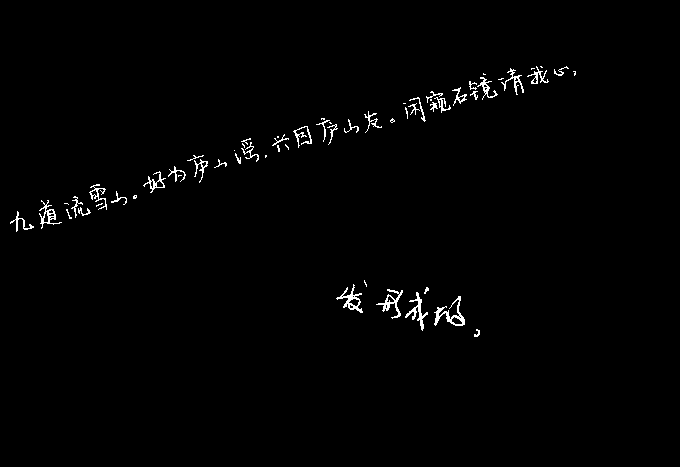 九道流雪山。好为庐山谣,兴因庐山发。闲窥石镜清我心,
发形求